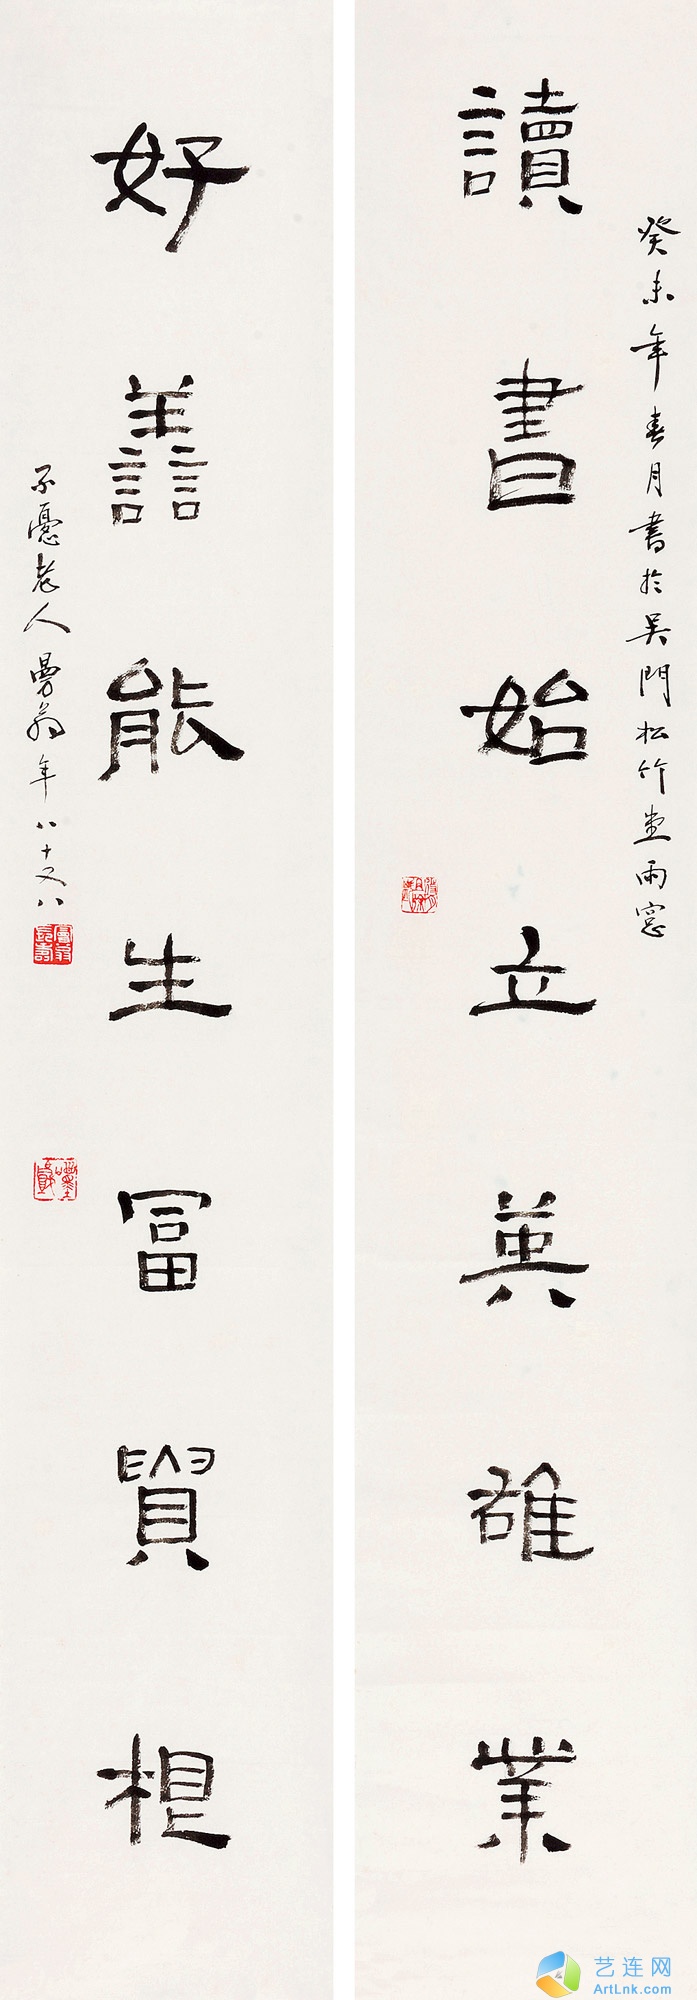 癸未年春月書於吳門松竹堂雨窓
讀書始立英雄業
好譱能生冨貴根
不憂老人曼翁年八十又八
曼翁長壽
艺连网
ArtLnk.com